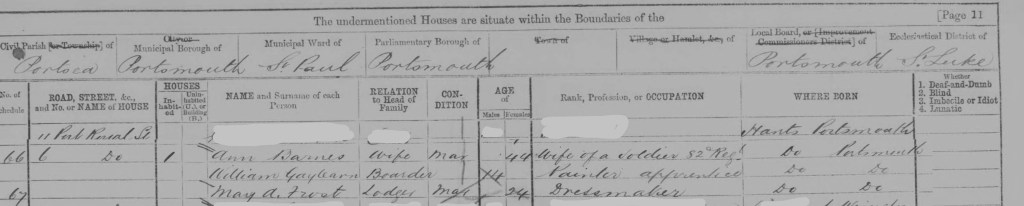 The undermentioned Houses are situate within the Boundaries of the [Page 11
Civil Parish [or Township] of
City or Municipal Borough of
Municipal Ward of
Parliamentary Borough of
Town of
Village or Hamlet, &c., of
Local Board, or [Improvement Commissioners District] of
Ecclesiastical District of
Portsea Portsmouth St. Paul Portsmouth Portsmouth St. Luke
No. of Schedule
ROAD, STREET, &c., and No. or NAME of HOUSE
HOUSES
Inhabited
Uninhabited (U.), or Building (B.)
NAME and Surname of each Person
RELATION to Head of Family
CONDITION
AGE of
Males Females
Rank, Profession, or OCCUPATION
WHERE BORN
Whether
1. Deaf-and-Dumb
2. Blind
3. Imbecile or Idiot
4. Lunatic
11 St. Hants Portsmouth
66 6 Do 1 Ann Barnes Wife Mar 44 Wife of a Soldier 82d Regt Do Portsmouth
William Boarder 14 Painter apprentice Do Do
67 Mary A. Frost Lodger Mar 24 Dressmaker Do Do